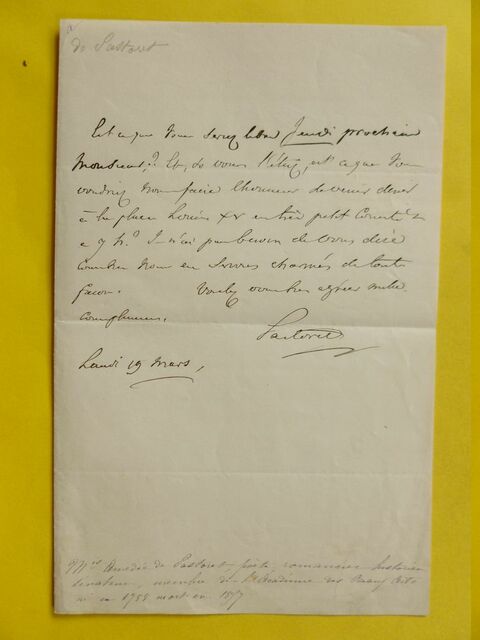 de Pastoret
Est ce que vous serez libre Jeudi prochain
Monsieur ? Et, si vous l'êtes, est ce que vous
voudrez nous faire l'honneur de venir diner
à la place Louis XV en très petit Comité
Je n'ai pas besoin de vous dire
combien nous en serions charmés de toute
facon. Veuillez agréer mille
complimens.
Pastoret
Lundi 19 Mars,
Amédée de Pastoret, poète, romancier historien
senateur, membre de l'Académie des Beaux Arts
né en mort en 1857